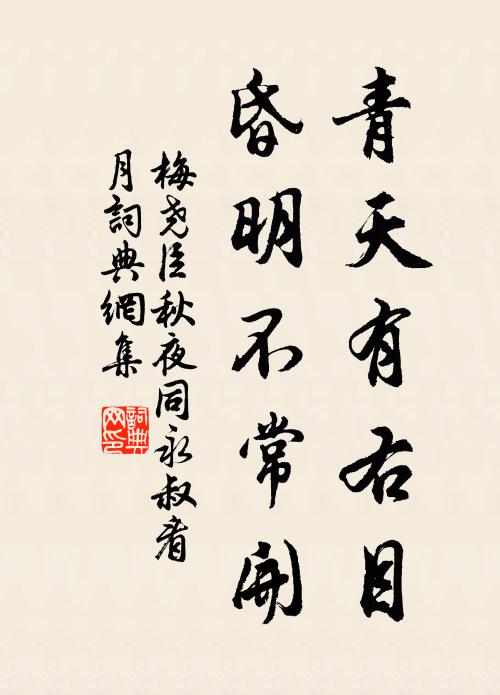 青天有右目
昏明不常開
梅尧臣秋夜同永叔看
月詞典網集
詞典
网印